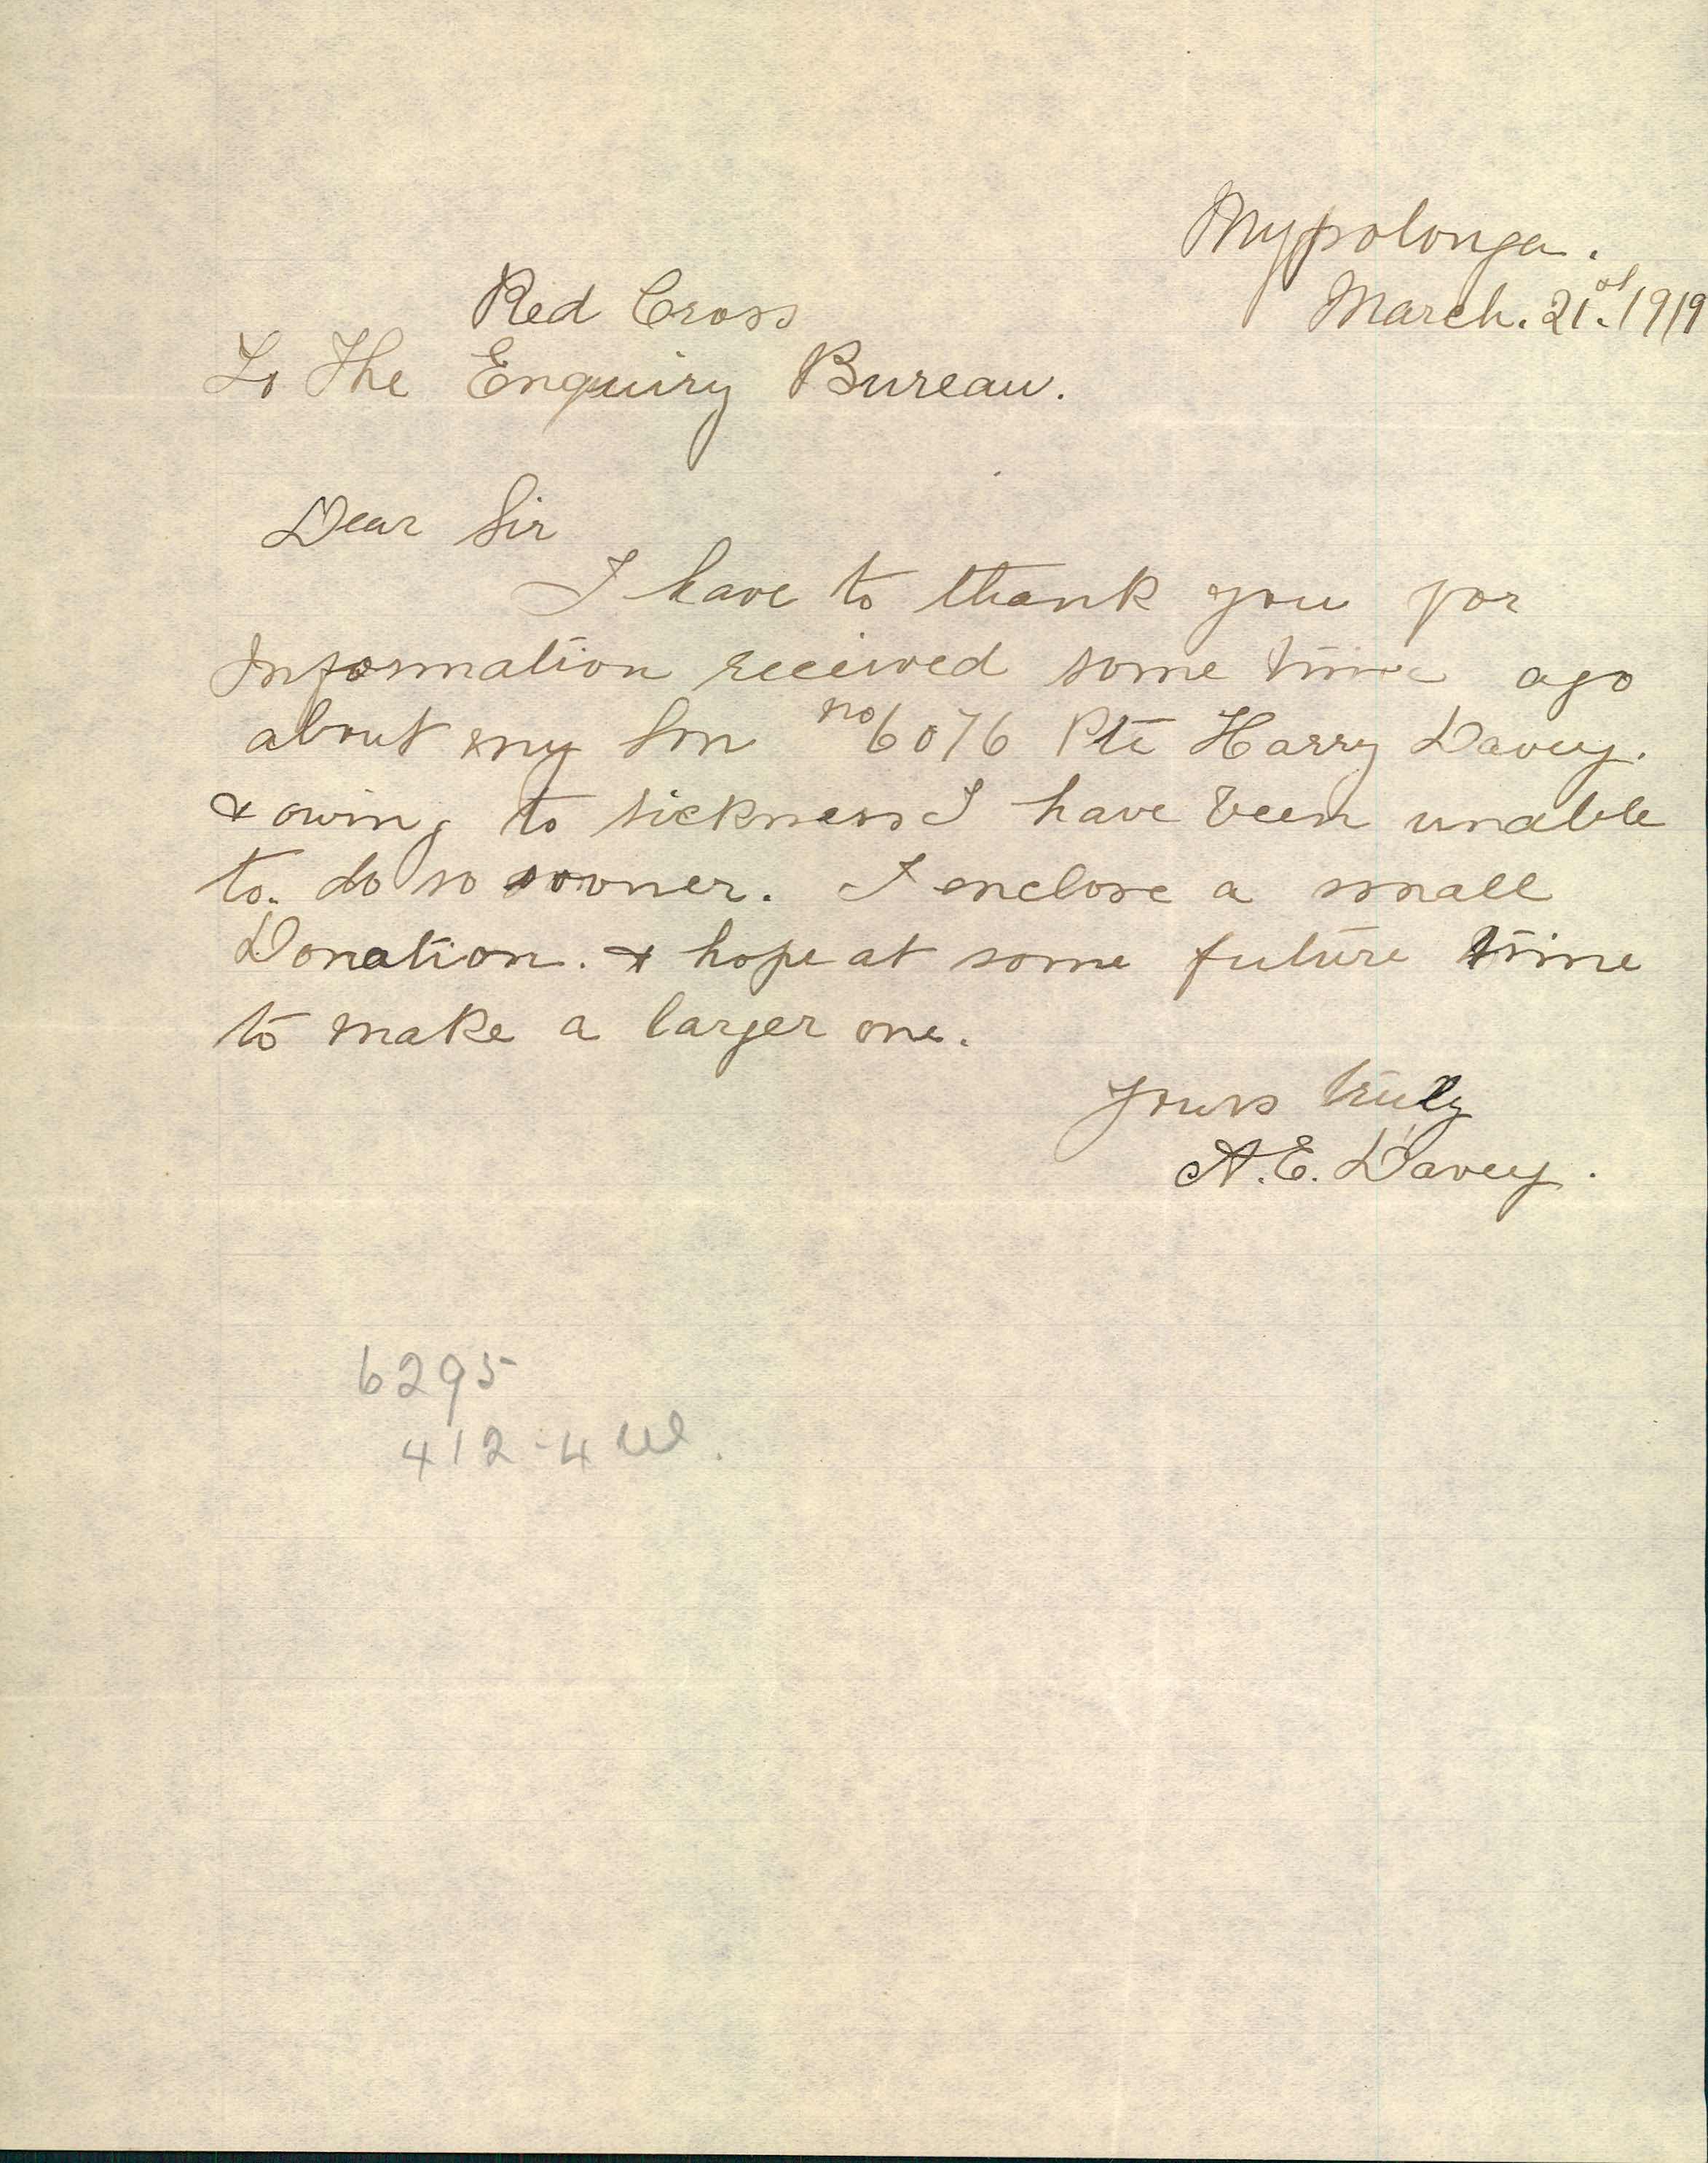 Mypolonga.
March. 21st. 1919
Red Cross
To The Enquiry Bureau.
Dear Sir
I have to thank you for
Information received some time ago
about my Son no 6076 Pte Harry Davey.
& owing to sickness I have been unable
to. do so sooner. I enclose a small
Donation. & hope at some future time
to make a larger one.
Yours truly
A. E. Davey.
6295
412-4